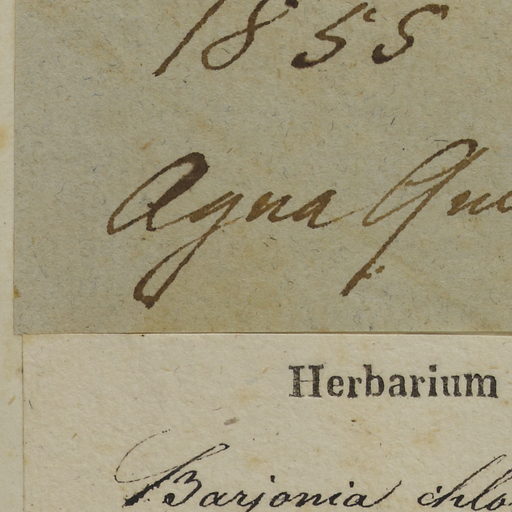 1855
Agua Que
Herbarium
Barjonia chlo